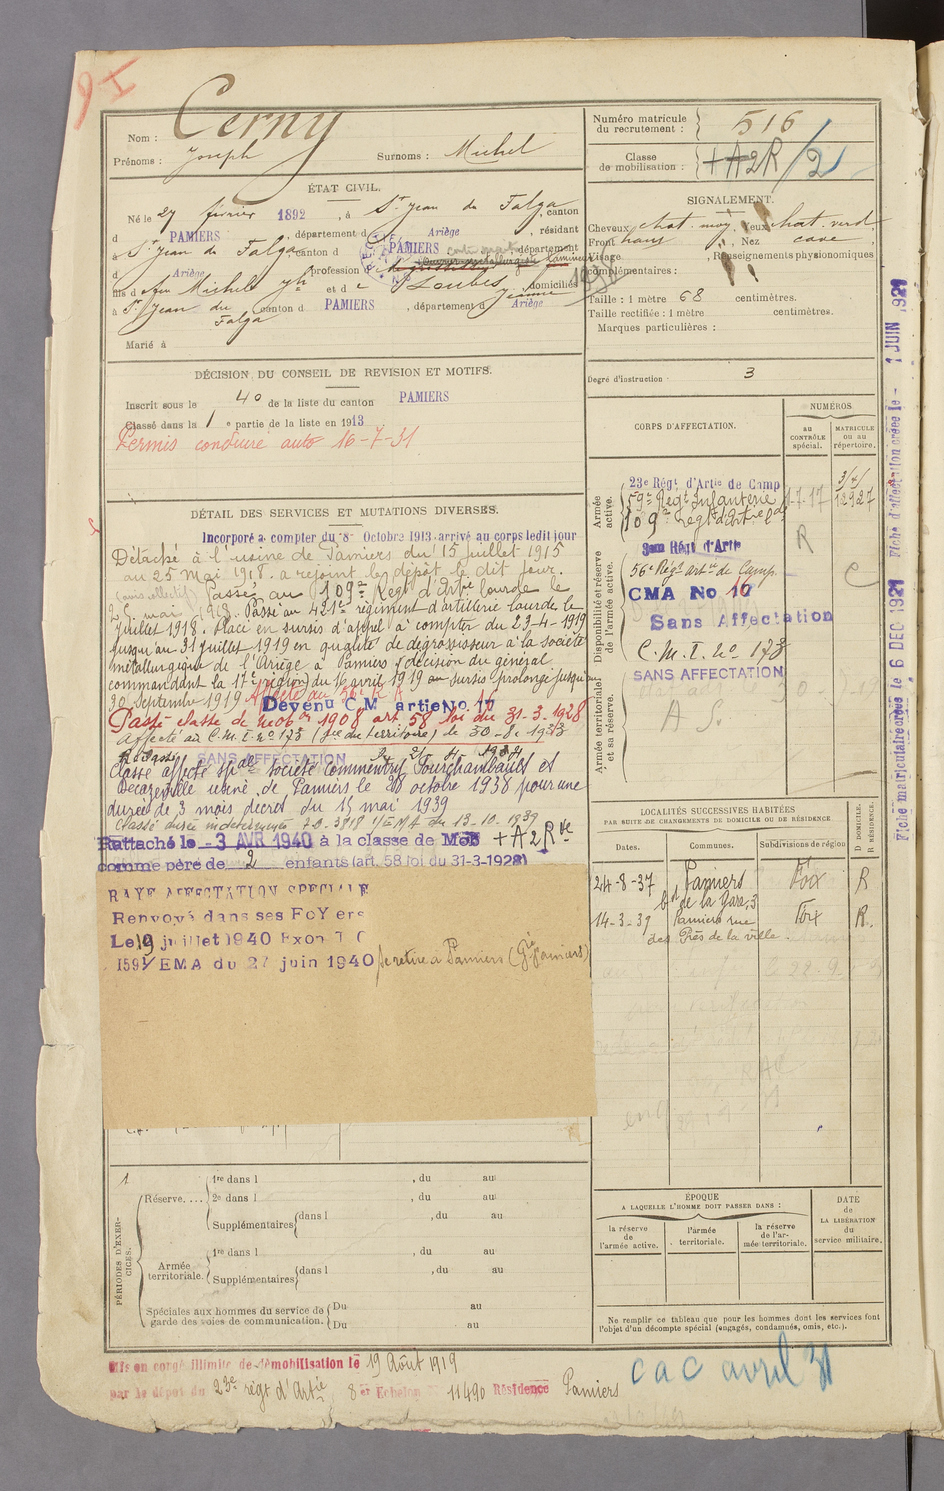 Nom : Cerny
Prénoms : Joseph Surnoms : Michel
Numéro matricule du recrutement : 516
Classe de mobilisation : +A2R/2
ÉTAT CIVIL.
Né le 27 février 1892, à St Jean du Falga, canton
d PAMIERS, département d Ariège, résidant
à St Jean du Falga, canton d PAMIERS département
d Ariège, profession
fils d feu Michel Jh et d Loubes Jeanne domiciliés
à St Jean du Falga canton d PAMIERS, département d Ariège
Marié à
SIGNALEMENT.
Cheveux chat. moy, Yeux chat. verd.
Front haus, Nez cave
Visage, Renseignements physionomiques
complémentaires :
Taille : 1 mètre 68 centimètres.
Taille rectifiée : 1 mètre centimètres.
Marques particulières :
Degré d'instruction 3
DÉCISION DU CONSEIL DE REVISION ET MOTIFS.
Inscrit sous le 40 de la liste du canton PAMIERS
Classé dans la 1e partie de la liste en 1913
Permis conduire auto 16-7-31
DÉTAIL DES SERVICES ET MUTATIONS DIVERSES.
Incorporé à compter du 8 Octobre 1913 arrivé au corps ledit jour
Détaché à l'usine de Pamiers du 15 juillet 1915
au 25 Mai 1918. a rejoint le dépôt le dit jour.
Passé au 109e Régt d'Artie lourde le
25 mai 1918. Passé au 421e régiment d'artillerie lourde le
juillet 1918. Placé en sursis d'appel à compter du 23-4-1919
jusqu'au 31 juillet 1919 en qualité de dégrossisseur à la société
métallurgique de l'Ariège à Pamiers (décision du général
commandant la 17e région) du 16 avril 1919 sursis prolongé jusqu'au
30 Septembre 1919 Affecté au 56e R A
Devenu C M artie No 17
Passé classe de mob on 1908 art. 58 loi du 31-3-1928
Affecté au C.M.I. no 173 le 30-8-1933
SANS AFFECTATION
Classé affecté spal société Commentry Fourchambault et
Decazeville usine de Pamiers le 28 octobre 1938 pour une
durée de 3 mois décret du 15 mai 1939
Classé durée indéterminée 20.3818 1/EMA du 13-10-1939
Rattaché le - 3 AVR 1940 à la classe de Mob +A2Rve
comme père de 2 enfants (art. 58 loi du 31-3-1928)
RAYE AFFECTATION SPECIALE
Renvoyé dans ses FoYers
Le 9 juillet 1940
1591/EMA du 27 juin 1940 se retire à Pamiers
CORPS D'AFFECTATION.
NUMÉROS
AU CONTRÔLE spécial.
MATRICULE ou au répertoire.
Armée active.
23e Régt d'Artie de Camp
59e Régt Infanterie
109e Régt d'Art
12927
Disponibilité et réserve de l'armée active.
56e Régt artie de Camp.
CMA No 10
Sans Affectation
C. M. I. no 173
Armée territoriale et sa réserve.
SANS AFFECTATION
LOCALITÉS SUCCESSIVES HABITÉES
PAR SUITE DE CHANGEMENTS DE DOMICILE OU DE RÉSIDENCE
Dates. Communes. Subdivisions de région D DOMICILE. R RÉSIDENCE.
24-8-37 Pamiers Foix R
bd de la Gare, 3
14-3-39 Pamiers rue Foix R.
des Prés de la ville.
PÉRIODES D'EXERCICES.
Réserve.... 1re dans l , du au
2e dans l , du au
Supplémentaires dans l , du au
Armée territoriale. 1re dans l , du au
Supplémentaires dans l , du au
Spéciales aux hommes du service de garde des voies de communication. Du au
Du au
ÉPOQUE
A LAQUELLE L'HOMME DOIT PASSER DANS :
la réserve de l'armée active.
l'armée territoriale.
la réserve de l'armée territoriale.
DATE de LA LIBÉRATION du service militaire.
Ne remplir ce tableau que pour les hommes dont les services font
l'objet d'un décompte spécial (engagés, condamnés, omis, etc.).
Mis en congé illimité de démobilisation le 19 Août 1919
par le dépôt du 23e régt d'Artie, 8er Echelon 11490 Résidence Pamiers
cac avril 31
Fiche matriculaire créée le 6 DEC 1921 Fiche d'affectation créée le - 1 JUIN 1921